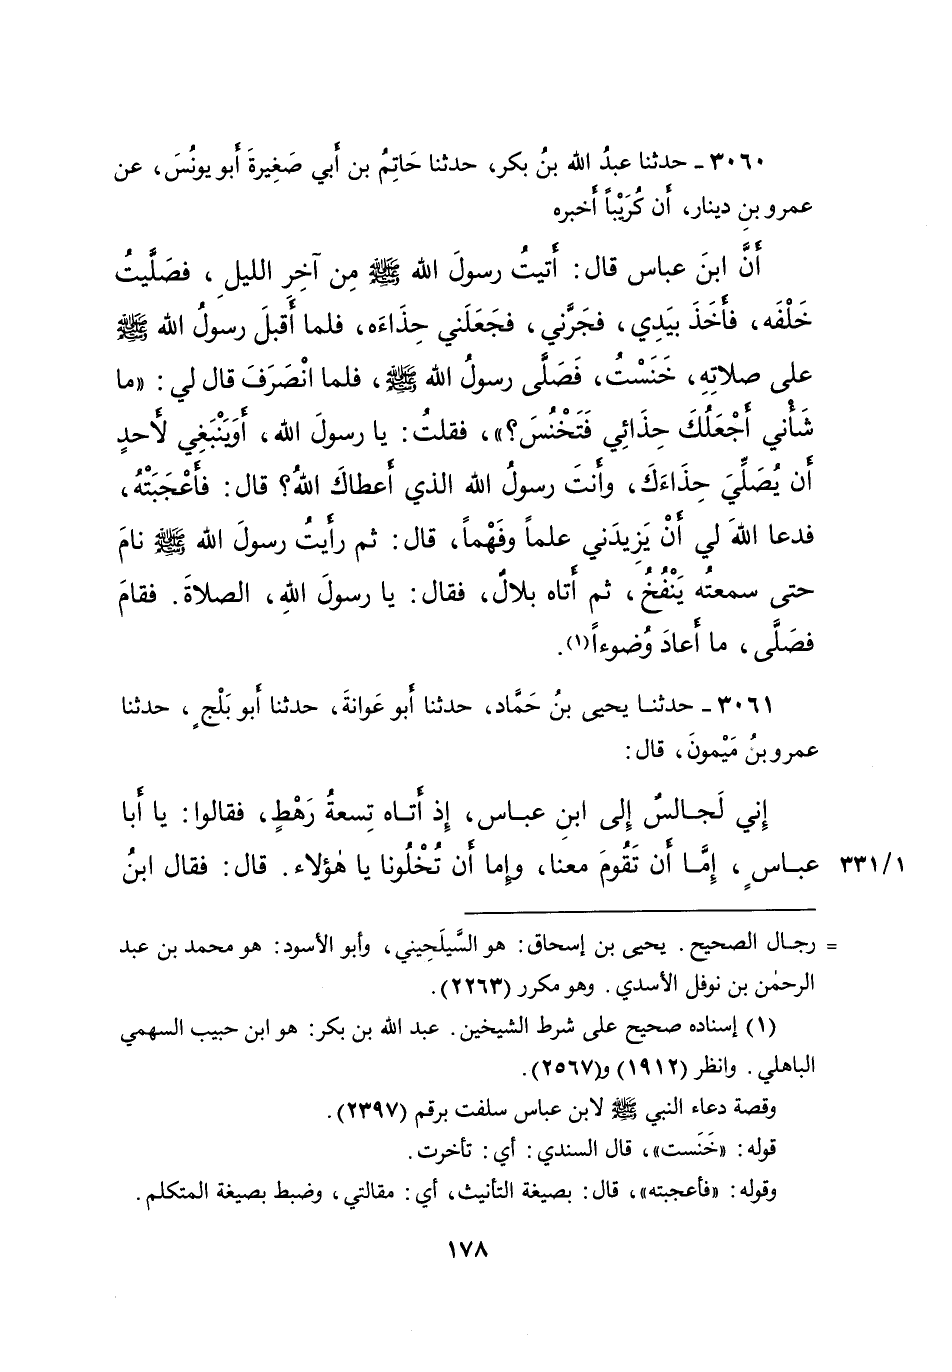 ٣٠٦٠ ـ حدثنا عبدُ الله بنُ بكر، حدثنا حَاتِمُ بن أَبي صَغِيرةَ أَبو يونُسَ، عن
عمرو بنِ دينار، أَن كُرَيْباً أَخبره
أَنَّ ابنَ عباس قال: أَتيتُ رسولَ الله ﷺ مِن آخِرِ الليلِ، فصَلَّيتُ
خَلْفَه، فأَخَذَ بيَدِي، فجَرَّني، فجَعَلَني حِذَاءَه، فلما أَقبلَ رسولُ الله ﷺ
على صلاتِهِ، خَنَسْتُ، فَصَلَّى رسولُ الله ﷺ، فلما انْصَرَفَ قال لي: «ما
شَأْني أَجْعَلُكَ حِذَائي فَتَخْنُسَ؟»، فقلتُ: يا رسولَ الله، أَوَيَنْبَغِي لأَحدٍ
أَن يُصَلِّيَ حِذَاءَكَ، وأَنتَ رسولُ الله الذي أَعطاكَ اللهُ؟ قال: فأَعْجَبَتْهُ،
فدعا اللهَ لي أَنْ يَزِيدَني علماً وفَهْماً، قال: ثم رأَيتُ رسولَ الله ﷺ نامَ
حتى سمعتُه يَنْفُخُ، ثم أَتاه بلالٌ، فقال: يا رسولَ اللهِ، الصلاةَ. فقامَ
فصَلَّى، ما أَعادَ وُضوءاً(١).
٣٠٦١ ـ حدثنا يحيى بنُ حَمَّاد، حدثنا أَبو عَوانةَ، حدثنا أَبو بَلْجٍ، حدثنا
عمرو بنُ مَيْمونَ، قال:
إِني لَجالسٌ إِلى ابنِ عباس، إِذ أَتاه تِسعةُ رَهْطٍ، فقالوا: يا أَبا
عباسٍ، إِمَّا أَن تَقُومَ معنا، وإِما أَن تُخْلُونا يا هٰؤلاء. قال: فقال ابنُ ٣٣١/١
= رجال الصحيح. يحيى بن إسحاق: هو السَّيلَحِيني، وأبو الأسود: هو محمد بن عبد
الرحمٰن بن نوفل الأسدي. وهو مكرر (٢٢٦٣).
(١) إسناده صحيح على شرط الشيخين. عبد الله بن بكر: هو ابن حبيب السهمي
الباهلي. وانظر (١٩١٢) و(٢٥٦٧).
وقصة دعاء النبي ﷺ لابن عباس سلفت برقم (٢٣٩٧).
قوله: «خَنَست»، قال السندي: أي: تأخرت.
وقوله: «فأعجبته»، قال: بصيغة التأنيث، أي: مقالتي، وضبط بصيغة المتكلم.
١٧٨